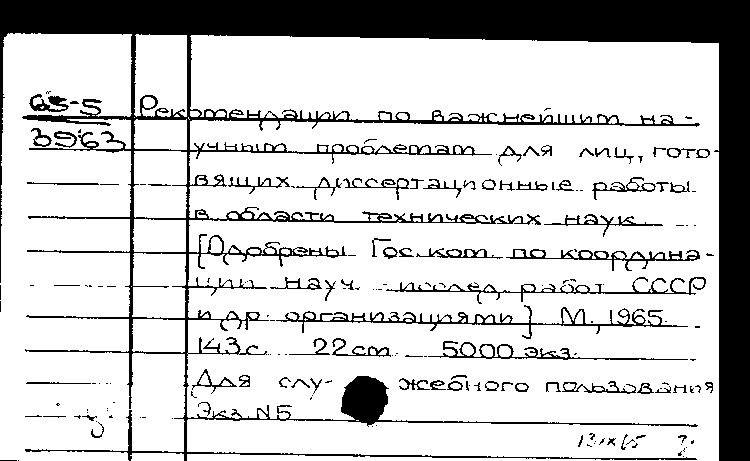 65-5 Рекомендации по важнейшим на-
3963 учным проблемам для лиц, гото-
вящих диссертационные работы
в области технических наук
[Одобрены Гос. ком. по координа-
ции науч. исслед. работ СССР
и др. организациями] М., 1965.
143 с. 22 cm. 5000 экз.
Для слу- жебного пользования
Экз. N5
13/IX 65